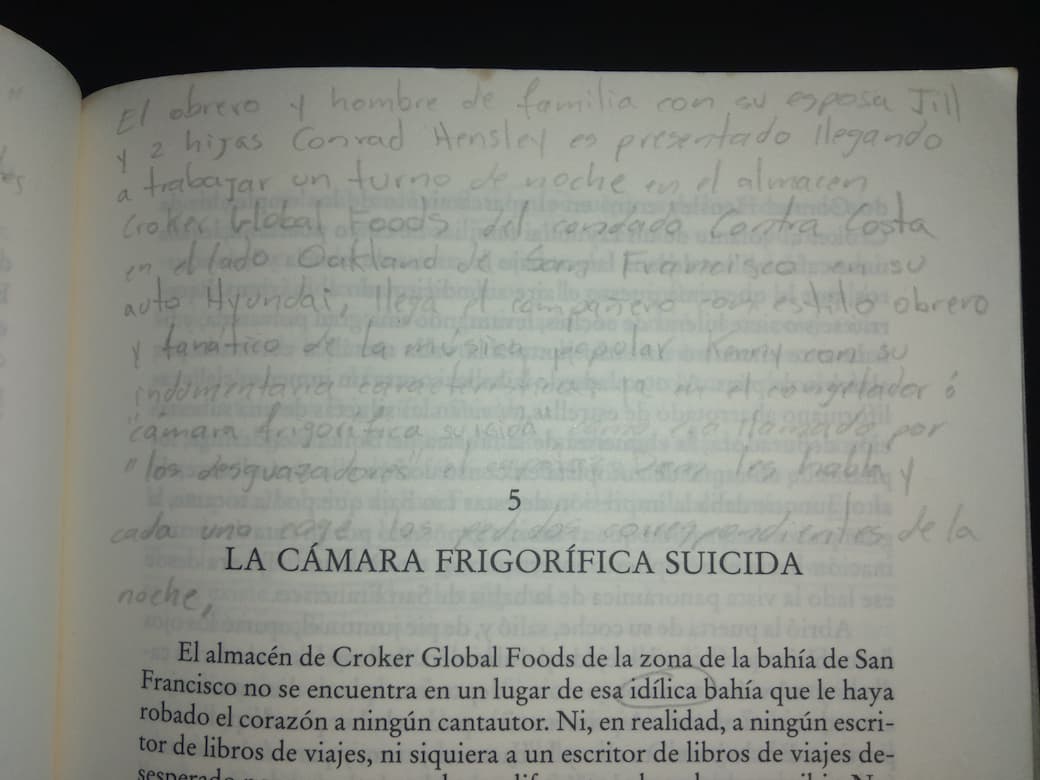 El obrero y hombre de familia con su esposa Jill
y 2 hijas Conrad Hensley es presentado llegando
a trabajar un turno de noche en el almacen
Croker Global Foods del condado Contra Costa
en el lado Oakland de San Francisco en su
auto Hyundai, llega el compañero con estilo obrero
y fanático de la musica popular Kenny con su
indumentaria caracteristica, ya en el congelador ó
"cámara frigorífica suicida" como es llamado por
"los desguazadores" el les habla y
cada uno coge los pedidos correspondientes de la
noche,
5
LA CÁMARA FRIGORÍFICA SUICIDA
El almacén de Croker Global Foods de la zona de la bahía de San
Francisco no se encuentra en un lugar de esa idílica bahía que le haya
robado el corazón a ningún cantautor. Ni, en realidad, a ningún escri-
tor de libros de viajes, ni siquiera a un escritor de libros de viajes de-
sesperado